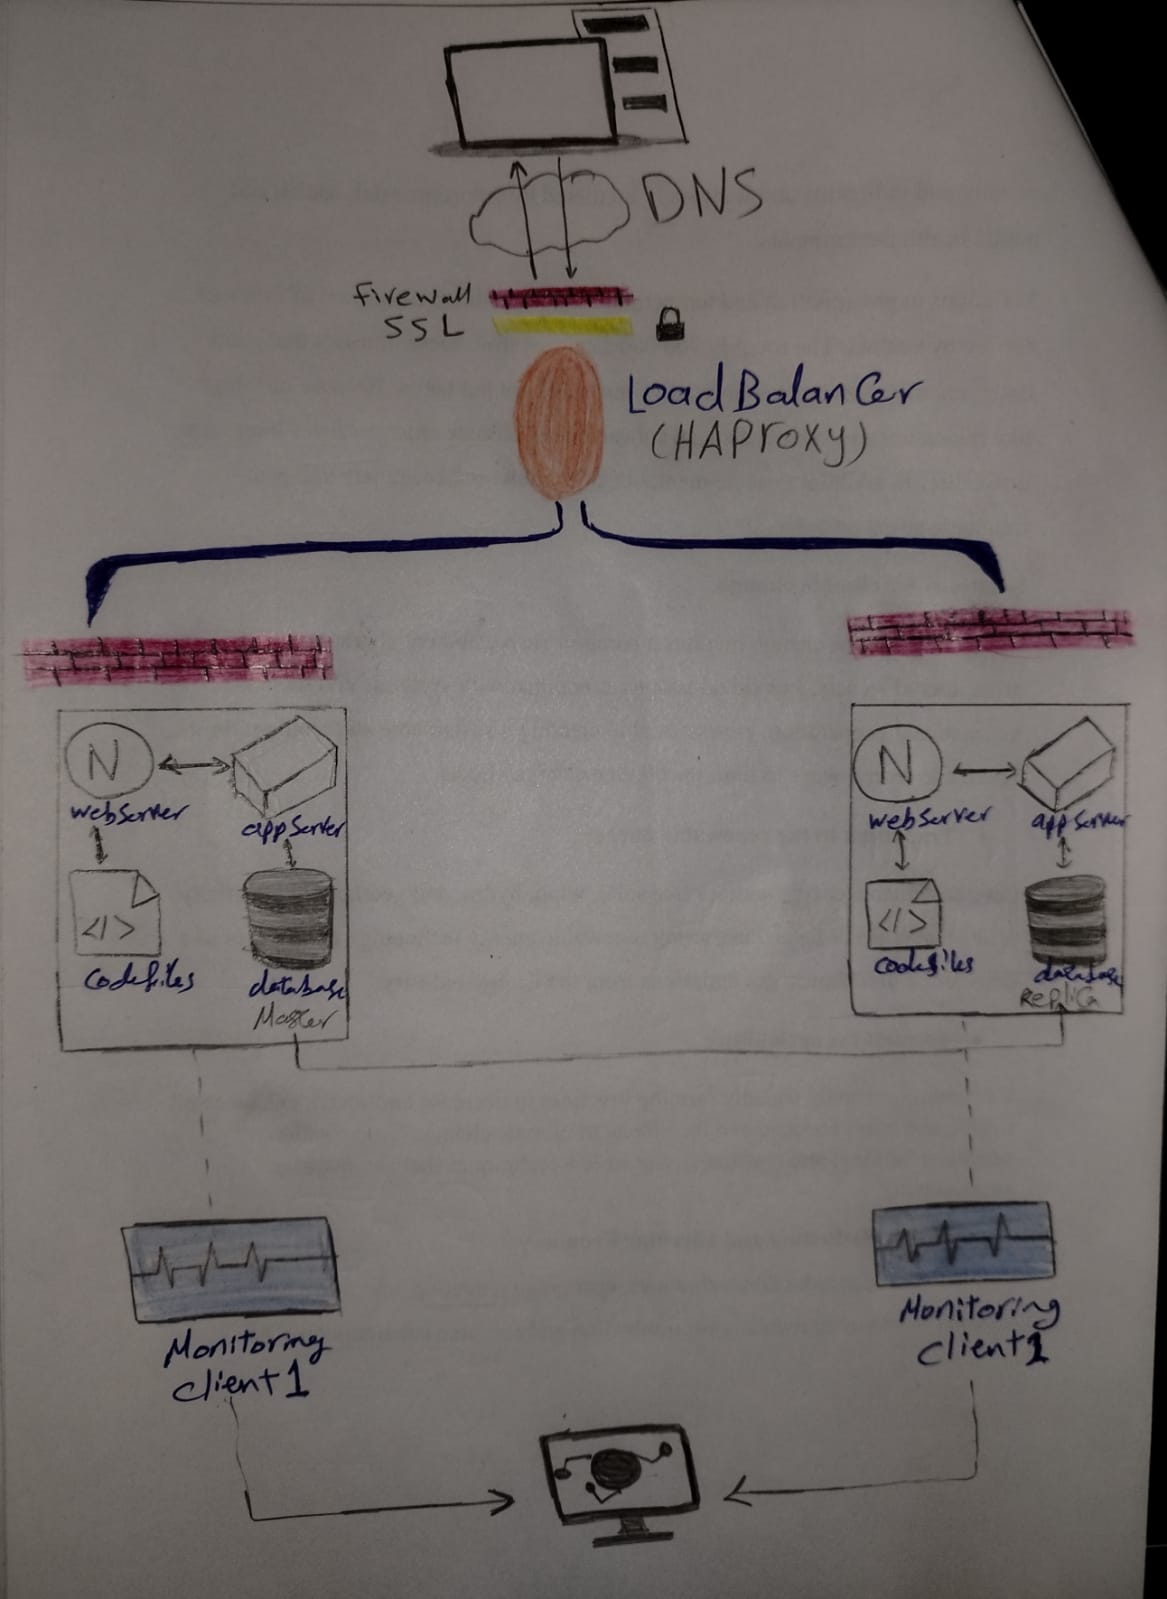 DNS
Firewall
SSL
Load Balancer
(HAProxy)
N
webserver
appserver
</>
Codefiles
database
Master
N
webserver
appserver
</>
codefiles
database
Replica
Monitoring
client 1
Monitoring
client 1